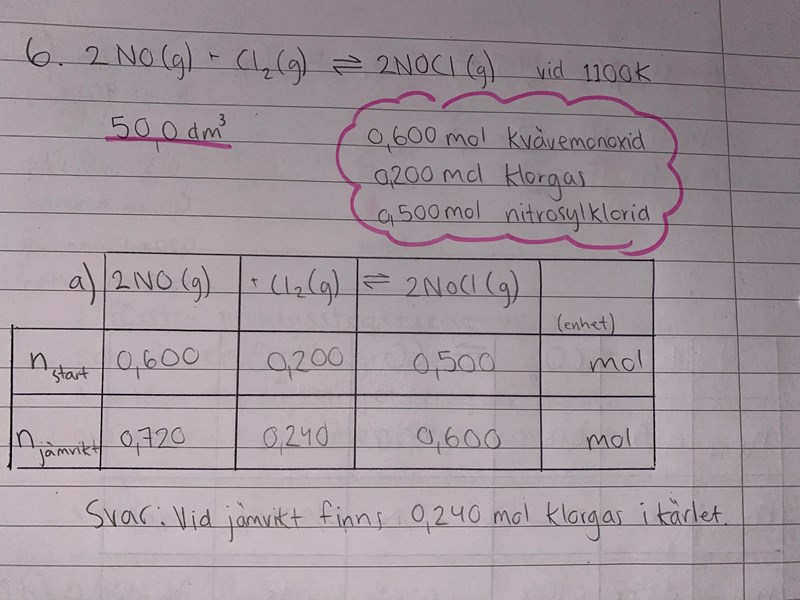 6. 2NO(g) + Cl₂(g) ⇌ 2NOCl(g) vid 1100K
50,0 dm³
0,600 mol kvävemonoxid
0,200 mol klorgas
0,500 mol nitrosylklorid
a) 2NO(g) + Cl₂(g) ⇌ 2NOCl(g) (enhet)
nstart 0,600 0,200 0,500 mol
njämvikt 0,720 0,240 0,600 mol
Svar: Vid jämvikt finns 0,240 mol klorgas i kärlet.